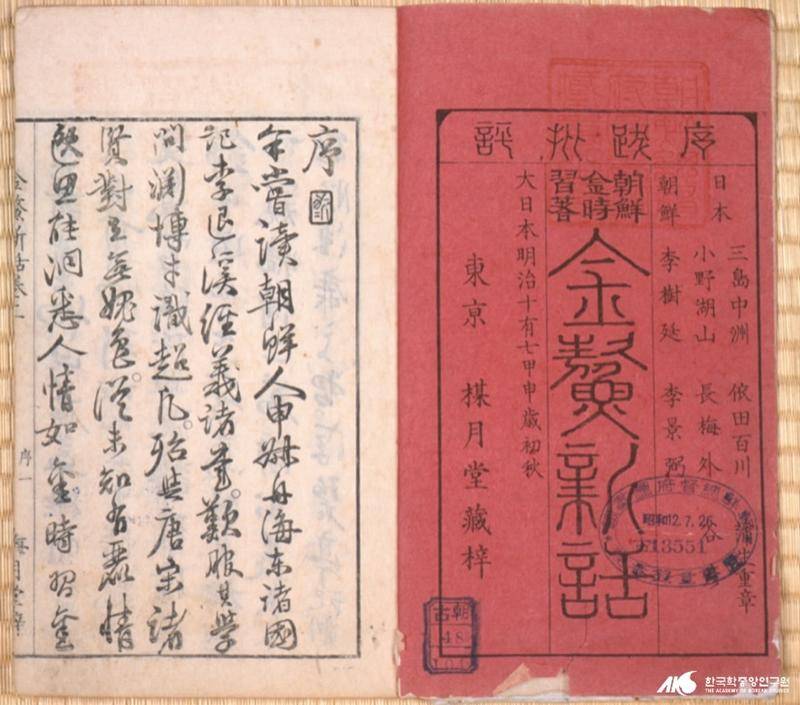 序跋批評
日本
三島中洲 依田百川 蒲生重章
小野湖山 長梅外 谷
朝鮮 李樹廷 李景弼
朝鮮
金時
習著
金鰲新話
大日本明治十有七甲申歳初秋
東京 楳月堂藏梓
昭和12.7.26
13551
朝
古
48
序
余嘗讀朝鮮人申叔舟海东諸國
記李退溪經義諸書。歎服其學
問渊博才識超凡。殆與唐宋諸
賢對立無愧色。從未知有麗情
艶思能洞悉人情如金時習金
金鰲新話卷上 序一 梅月堂梓
한국학중앙연구원
THE ACADEMY OF KOREAN STUDIES